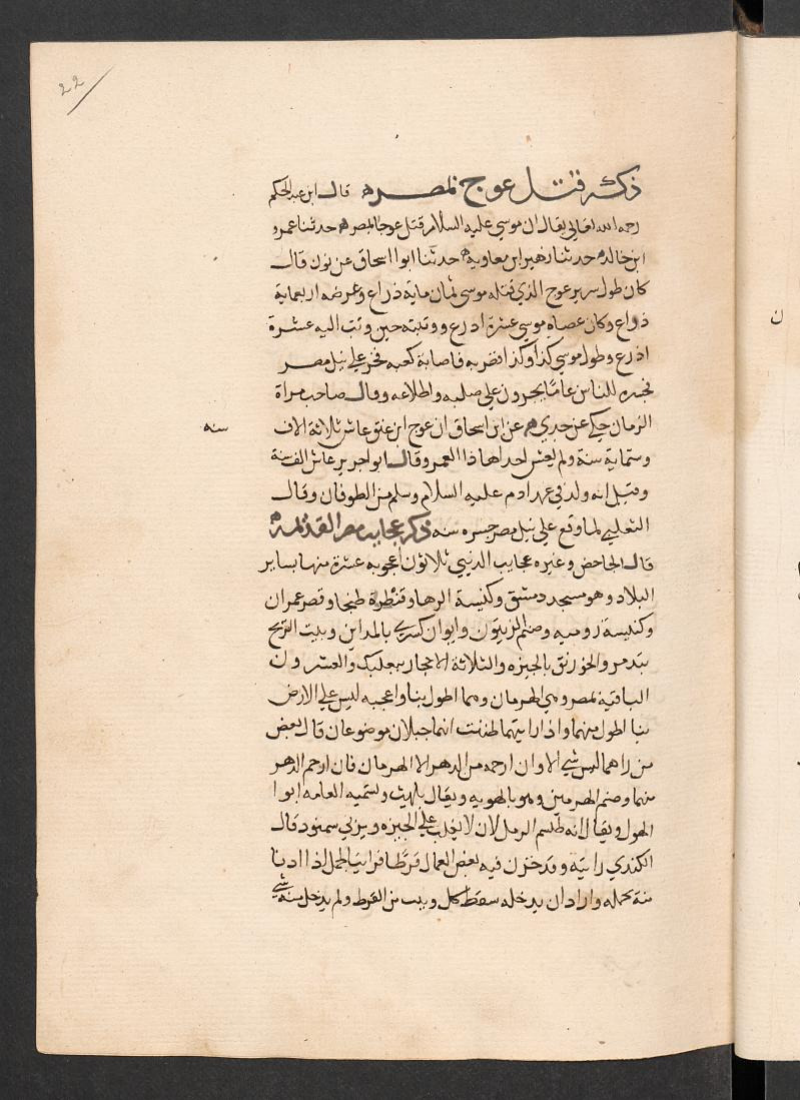 22
ذكر قتل عوج بمصر ه قال ابن عبد الحكم
رحمه الله تعالى يقال ان موسي عليه السلام قتل عوجا بمصر ه حدثنا عمرو
ابن خالد ه حدثنا زهير ابن معاويه ه حدثنا ابوا اسحاق عن نوف قال
كان طول سرير عوج الذي قتله موسي ثمان ماية ذراع وعرضه اربعماية
ذراع وكان عصاه موسي عشرة اذرع ووثبته حين وثب اليه عشرة
اذرع وطول موسي كذا وكذا فضربه فاصابة كعبه فخر علي نيل مصر
فجسره للناس عاما يجرون علي صلبه واطلاعه وقال صاحب مراة
الزمان حكي عن جدي ه عن ابن اسحاق ان عوج ابن عنق عاش ثلاثة الاف سنه
وستماية سنة ولم يعش احدا هاذا العمر وقال ابوا جرير عاش الف سنة
وقيل انه ولد في عهد ادم عليه السلام وسلم من الطوفان وقال
الثعلبي لما وقع علي نيل مصر جسره سنه ذكر عجايب مصر القديمه ه
قال الجاحض وغيره عجايب الدنيي ثلاثون اعجوبه عشرة منها بساير
البلاد وهو مسجد دمشق وكنيسة الرها وقنطرة طنجا وقصر عمران
وكنيسة روميه وصنم الزيتون وايوان كسري بالمداين وبيت الريح
بتدمر والخورنق بالجيزه والثلاثة الاحجار ببعلبك والعشرون
الباقية بمصر وهي الهرمان وهما اطول بنا واعجبه ليس علي الارض
بنا اطول منهما واذا رايتهما ظننت انهما جبلان موضوعان قال بعض
من راهما ليس شي الا وان ارحمه من الدهر الا الهرمان فان ارحم الدهر
منهما وصنم الهرمين وهو بالهويه ويقال بلهيت وتسميه العامه ابوا
الهول ويقال انه طلسم الرمل لان لا يغلب علي الجيزه وبربي سمنود قال
الكندي رايته وقد خزن فيه بعض العمال قرطا فرايت الجمل اذا ادنا
منه بحمله واراد ان يدخله سقط كل دبيب من القرط ولم يدخل منه شي